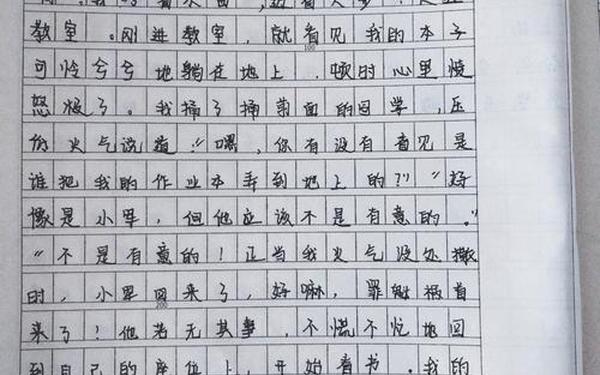 教室。刚进教室，就看见我的本子
100
可怜兮兮地躺在地上，顿时心里愤
怒极了。我捅了捅前面的同学，压
价火气说道："喂，你有没有看见是
谁把我的作业本弄到地上的？""好
像是小军，但他应该不是有意的。"
"不是有意的！正当我火气没处撒
时，小军回来了，好嘛，罪魁祸首
200
来了！他若无其事，不慌不忙地回
到自己的座位上，开始看书。我的